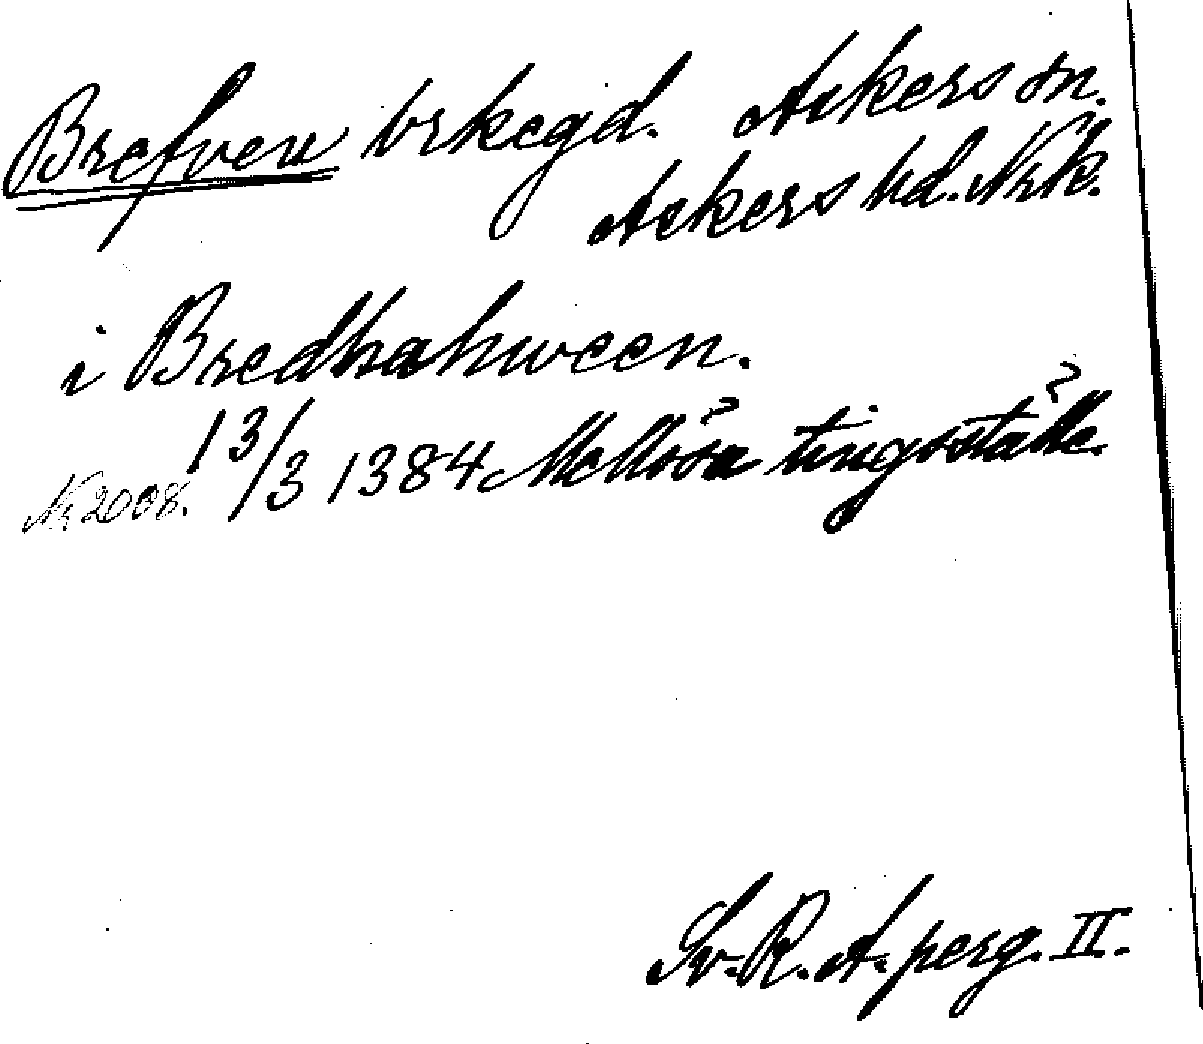 Brefven brkegd. Askers sn.
Askers hd. Nrk.
i Bredhahween.
Nr 2008. 13/3 1384 Mellösa tingsställe.
Sv. R. A. perg. II.